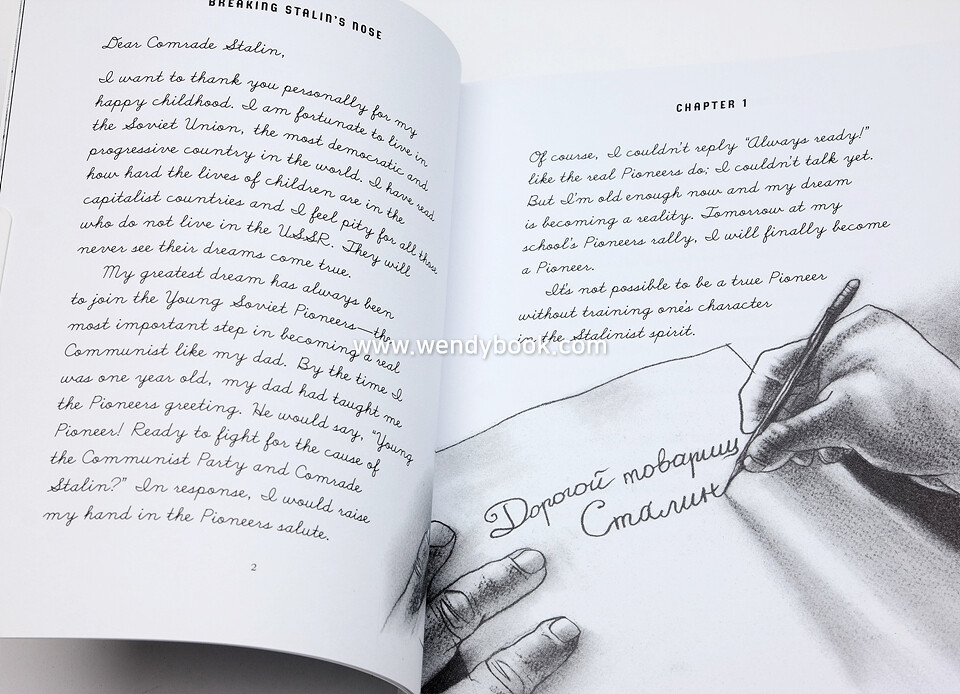 BREAKING STALIN'S NOSE
Dear Comrade Stalin,
I want to thank you personally for my
happy childhood. I am fortunate to live in
the Soviet Union, the most democratic and
progressive country in the world. I have read
how hard the lives of children are in the
capitalist countries and I feel pity for all those
who do not live in the USSR. They will
never see their dreams come true.
My greatest dream has always been
to join the Young Soviet Pioneers—the
most important step in becoming a real
Communist like my dad. By the time I
was one year old, my dad had taught me
the Pioneers greeting. He would say, "Young
Pioneer! Ready to fight for the cause of
the Communist Party and Comrade
Stalin?" In response, I would raise
my hand in the Pioneers salute.
2
CHAPTER 1
Of course, I couldn't reply "Always ready!"
like the real Pioneers do; I couldn't talk yet.
But I'm old enough now and my dream
is becoming a reality. Tomorrow at my
school's Pioneers rally, I will finally become
a Pioneer.
It's not possible to be a true Pioneer
without training one's character
in the Stalinist spirit.
www.wendybook.com
Дорогой товарищ
Сталин